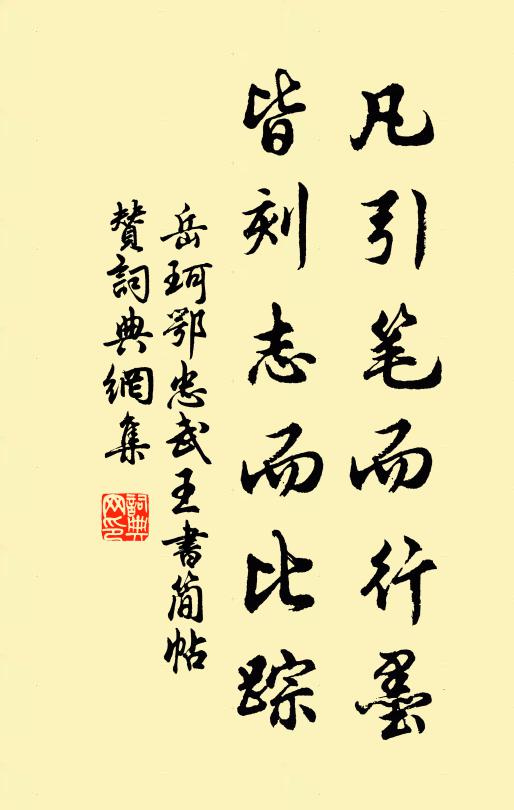 凡引笔而行墨
皆刻志而比踪
岳珂鄂忠武王书简帖
赞詞典網集
詞典
网印